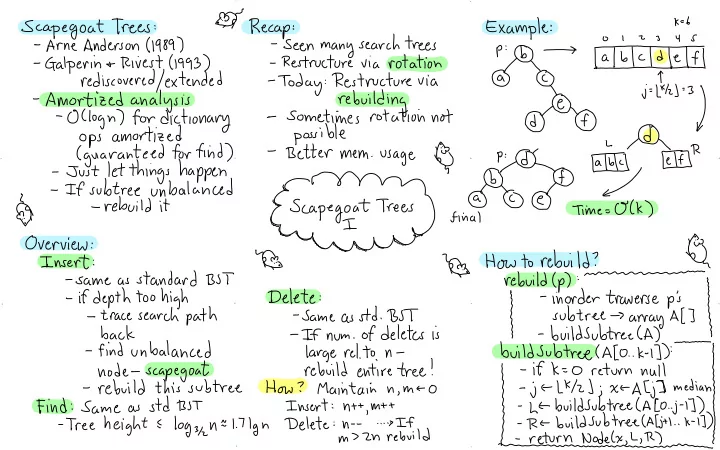 Scapegoat Trees:
- Arne Anderson (1989)
- Galperin + Rivest (1993)
rediscovered/extended
- Amortized analysis
- O(log n) for dictionary
ops amortized
(guaranteed for find)
- Just let things happen
- If subtree unbalanced
- rebuild it
Recap:
- Seen many search trees
- Restructure via rotation
- Today: Restructure via
rebuilding
- Sometimes rotation not
possible
- Better mem. usage
Scapegoat Trees
I
Example:
p:
b
a
c
e
d
f
k=6
0 1 2 3 4 5
a b c d e f
j=⌊k/2⌋=3
d
L
R
a b c
e f
p:
d
b
f
a
c
e
final
Time = O(k)
Overview:
Insert:
- same as standard BST
- if depth too high
- trace search path
back
- find unbalanced
node - scapegoat
- rebuild this subtree
Find: Same as std BST
- Tree height ≤ log₃/₂ n ≈ 1.7 lg n
Delete:
- Same as std. BST
- If num. of deletes is
large rel. to n -
rebuild entire tree!
How? Maintain n, m ← 0
Insert: n++, m++
Delete: n-- ⋯→ If
m > 2n rebuild
How to rebuild?
rebuild(p):
- inorder traverse p's
subtree → array A[]
- buildSubtree(A)
buildSubtree(A[0..k-1]):
- if k=0 return null
- j ← ⌊k/2⌋ ; x ← A[j] median
- L ← buildSubtree(A[0..j-1])
- R ← buildSubtree(A[j+1..k-1])
- return Node(x, L, R)